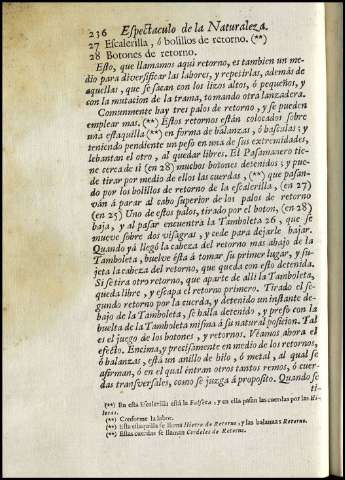 236 Espectaculo de la Naturaleza.
27 Escalerilla, ó bolillos de retorno. (**)
28 Botones de retorno.
Esto, que llamamos aqui retorno, es tambien un me-
dio para diversificar las labores, y repetirlas, además de
aquellas, que se sacan con los lizos altos, ó pequeños, y
con la mutacion de la trama, tomando otra lanzadera.
Comunmente hay tres palos de retorno, y se pueden
emplear mas. (**) Estos retornos están colocados sobre
una estaquilla (**) en forma de balanzas, ó basculas; y
teniendo pendiente un peso en una de sus extremidades,
lebantan el otro, al quedar libres. El Pasamanero tie-
ne cerca de sí (en 28) muchos botones detenidos; y pue-
de tirar por medio de ellos las cuerdas, (**) que pasan-
do por los bolillos de retorno de la escalerilla, (en 27)
ván á parar al cabo superior de los palos de retorno
(en 25) Uno de estos palos, tirado por el boton, (en 28)
baja, y al pasar encuentra la Tamboleta 26, que se
mueve sobre dos visagras, y cede para dejarle bajar.
Quando yá llegó la cabeza del retorno mas abajo de la
Tamboleta, buelve ésta á tomar su primer lugar, y su-
jeta la cabeza del retorno, que queda con esto detenida.
Si se tira otro retorno, que aparte de allí la Tamboleta,
queda libre, y escapa el retorno primero. Tirado el se-
gundo retorno por la cuerda, y detenido un instante de-
bajo de la Tamboleta, se halla detenido, y preso con la
buelta de la Tamboleta misma á su natural posicion. Tal
es el juego de los botones, y retornos. Véamos ahora el
efecto. Encima, y precisamente en medio de los retornos,
ó balanzas, está un anillo de hilo, ó metal, al qual se
afirman, ó en el qual entran otros tantos remos, ó cuer-
das transversales, como se juzga á proposito. Quando se
ti-
(**) En esta Escalerilla está la Falseta, y en ella pasan las cuerdas por las Ri-
(**) Conforme la labor.
(**) Esta estaquilla se llama Hierro de Retorno, y las balanzas Retorno.
(**) Estas cuerdas se llaman Cordeles de Retorno.